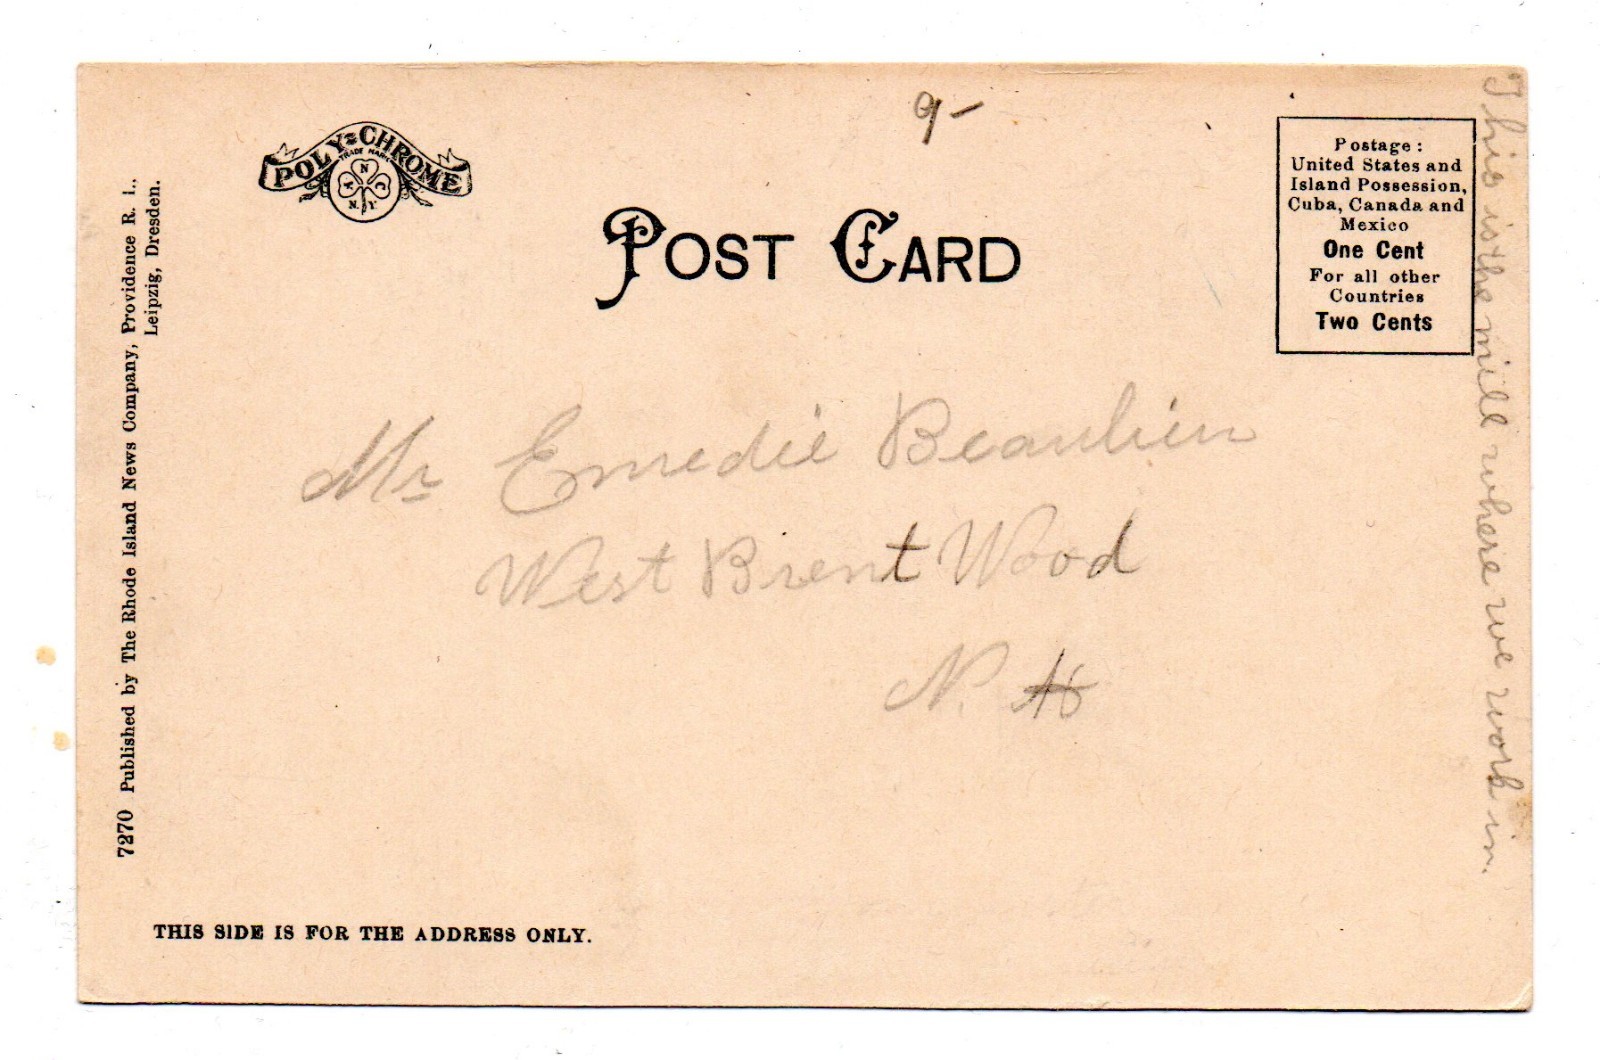 9-
POLY-CHROME
TRADE MARK
A N C
N.Y.
POST CARD
Postage:
United States and
Island Possession,
Cuba, Canada and
Mexico
One Cent
For all other
Countries
Two Cents
Mr Emedié Beaulieu
West Brent Wood
N. H
This is the mill where we work in.
7270 Published by The Rhode Island News Company, Providence R. I.,
Leipzig, Dresden.
THIS SIDE IS FOR THE ADDRESS ONLY.